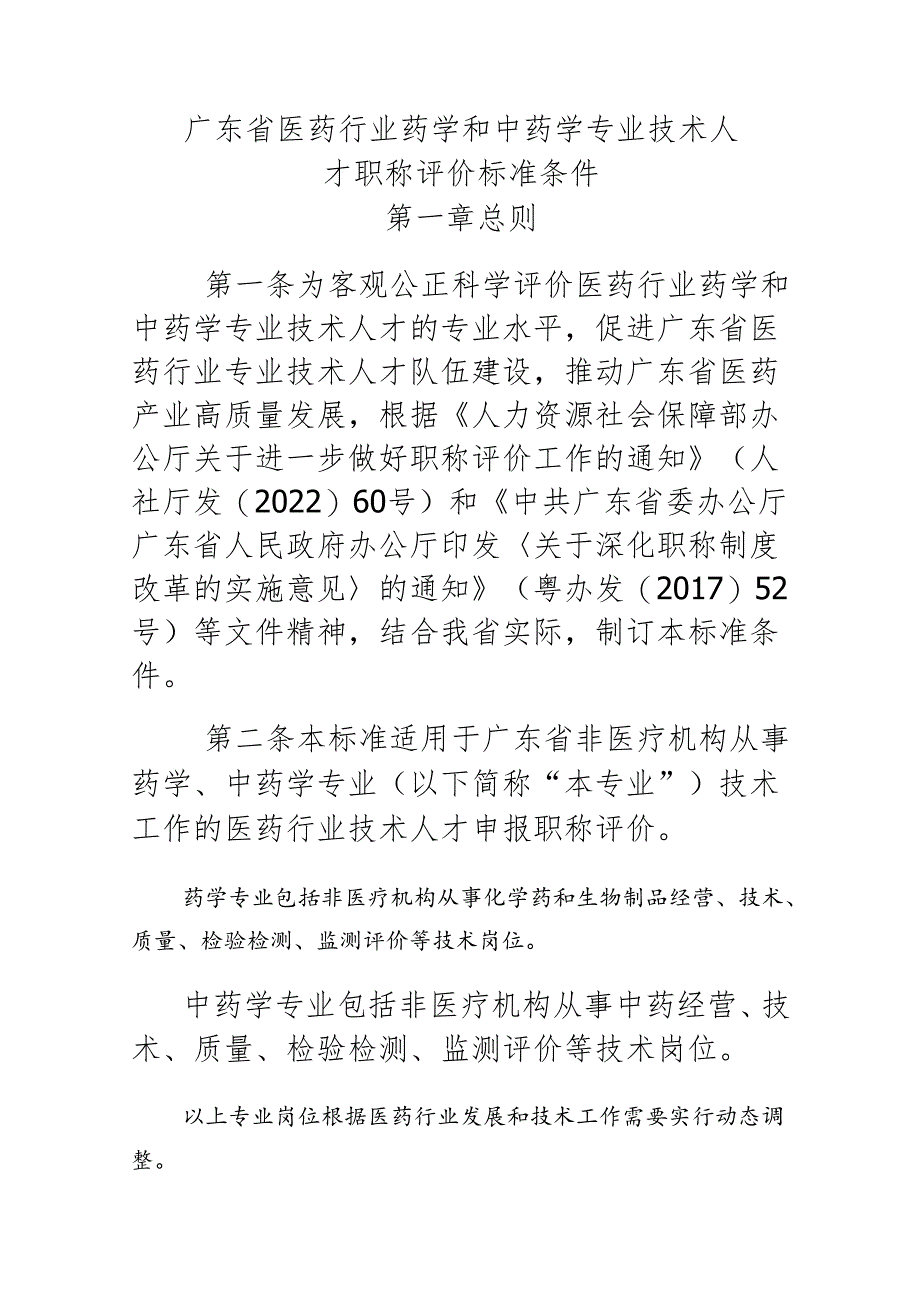 广东省医药行业药学和中药学专业技术人
才职称评价标准条件
第一章总则
第一条为客观公正科学评价医药行业药学和
中药学专业技术人才的专业水平，促进广东省医
药行业专业技术人才队伍建设，推动广东省医药
产业高质量发展，根据《人力资源社会保障部办
公厅关于进一步做好职称评价工作的通知》（人
社厅发（2022）60号）和《中共广东省委办公厅
广东省人民政府办公厅印发〈关于深化职称制度
改革的实施意见〉的通知》（粤办发（2017）52
号）等文件精神，结合我省实际，制订本标准条
件。
第二条本标准适用于广东省非医疗机构从事
药学、中药学专业（以下简称“本专业”）技术
工作的医药行业技术人才申报职称评价。
药学专业包括非医疗机构从事化学药和生物制品经营、技术、
质量、检验检测、监测评价等技术岗位。
中药学专业包括非医疗机构从事中药经营、技
术、质量、检验检测、监测评价等技术岗位。
以上专业岗位根据医药行业发展和技术工作需要实行动态调
整。